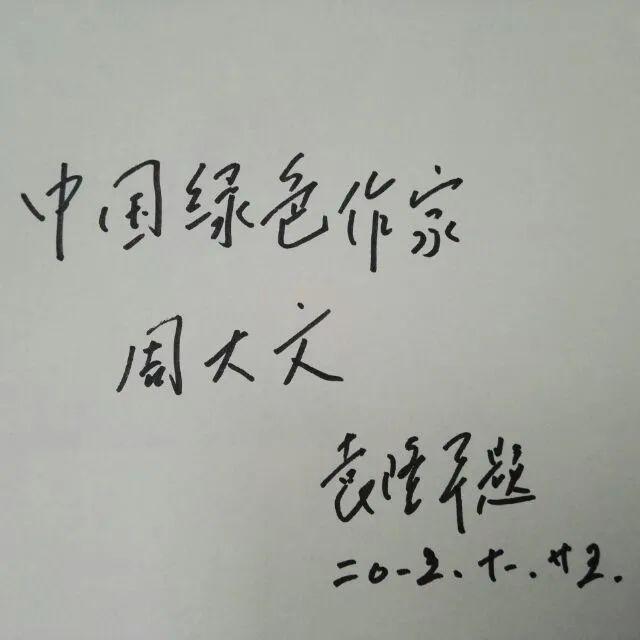 中国绿色作家
周大文
袁隆平题
二〇一2.十一.廿2.